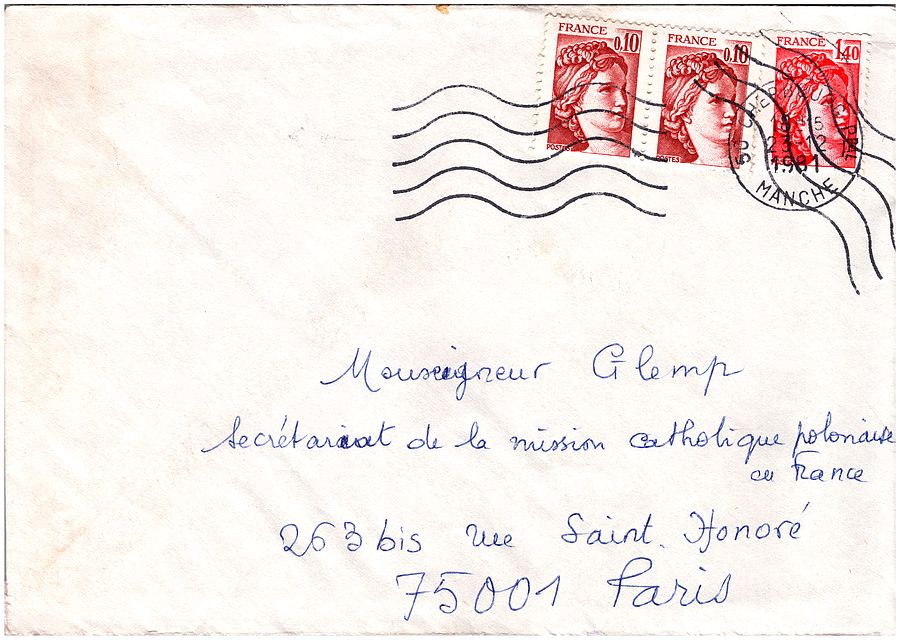 FRANCE 0.10
POSTES
FRANCE 0.10
POSTES
FRANCE 1.40
50 CHERBOURG PPAL
15
23 12
1981
MANCHE
Monseigneur Glemp
secrétariat de la mission catholique polonaise
en France
263 bis rue Saint. Honoré
75001 Paris